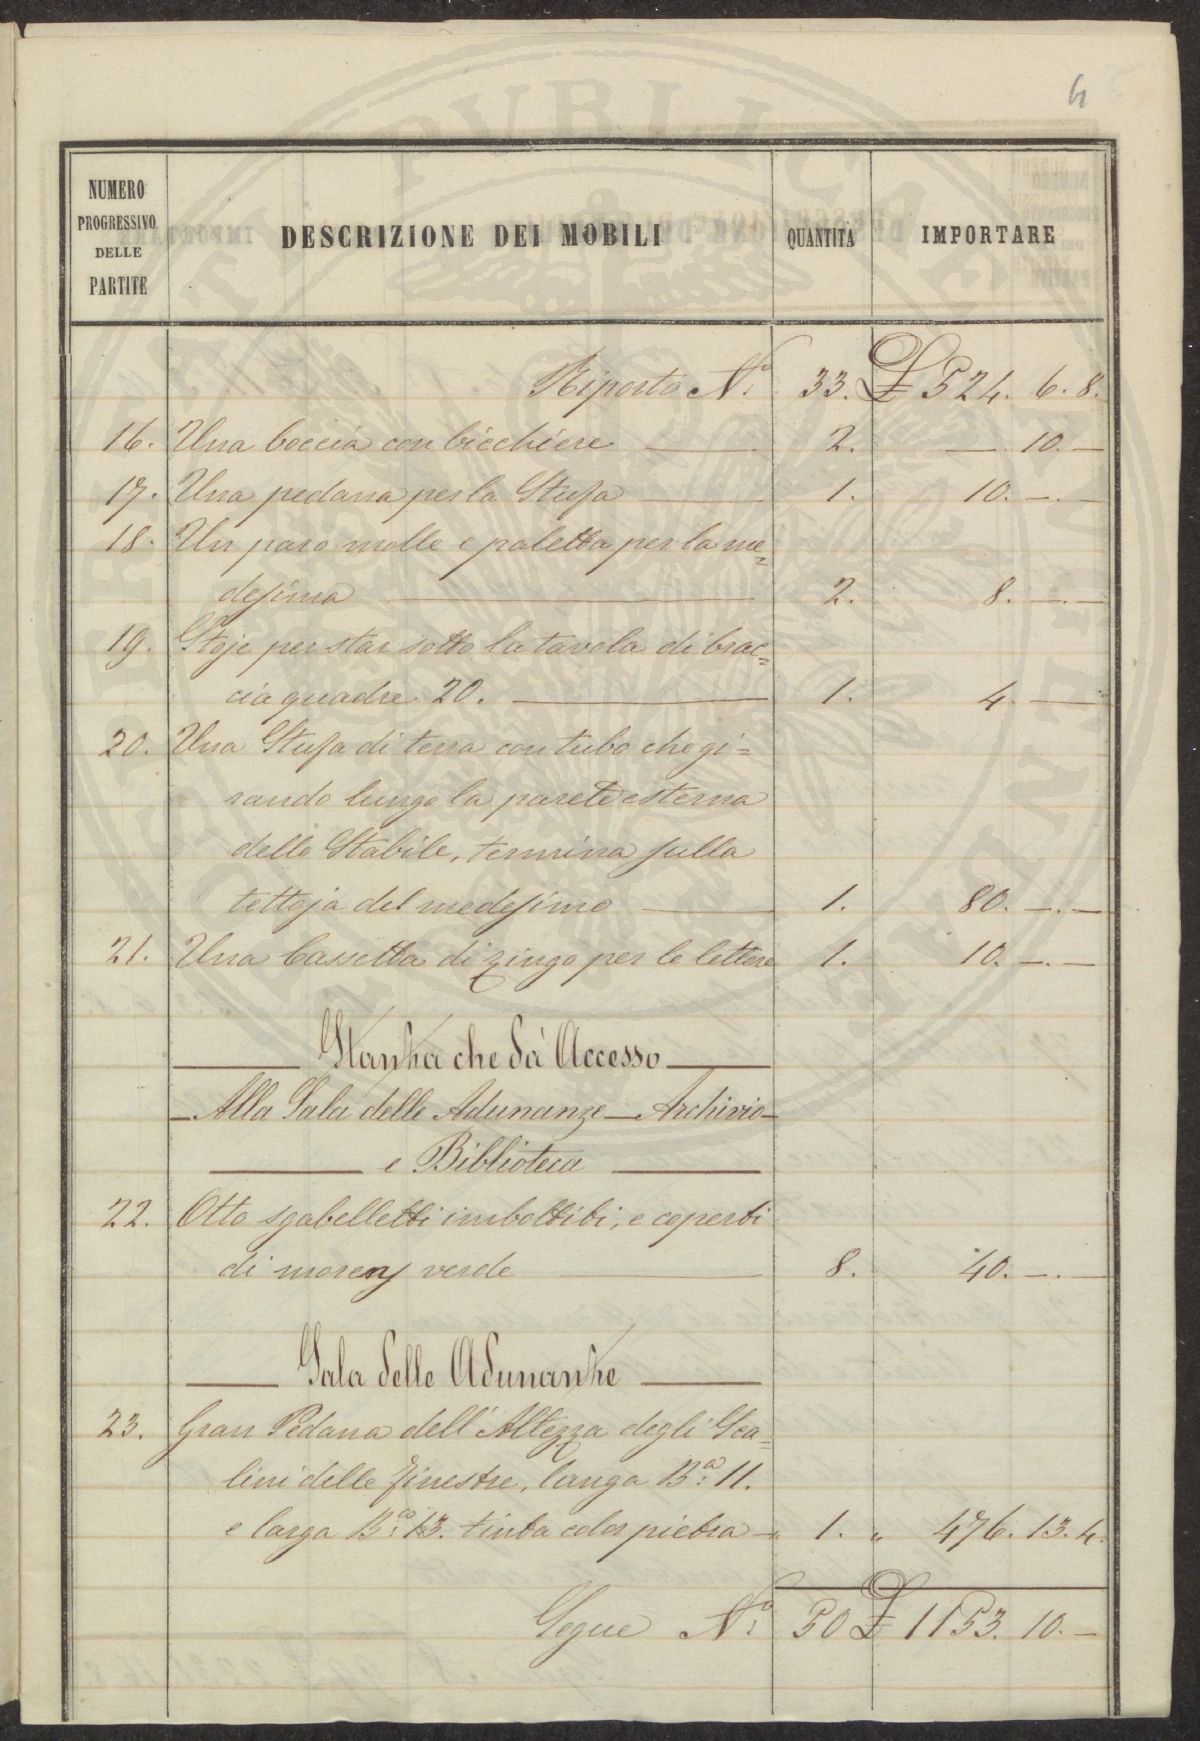 4
NUMERO PROGRESSIVO DELLE PARTITE DESCRIZIONE DEI MOBILI QUANTITÀ IMPORTARE
Riporto N.º 33. £ 524. 6. 8.
16. Una boccia con bicchiere 2. —. 10. —
17. Una pedana per la Stufa 1. 10. —. —
18. Un paro molle e paletta per la me=
desima 2. 8. —. —
19. Stoje per star sotto la tavola di brac=
cia quadre 20. 1. 4. —
20. Una Stufa di terra con tubo che gi=
rando lungo la parete esterna
dello Stabile, termina sulla
tettoja del medesimo 1. 80. —. —
21. Una Cassetta di zingo per le lettere 1. 10. —. —
Stanza che dà Accesso
Alla Sala delle Adunanze — Archivio
e Biblioteca
22. Otto sgabelletti imbottiti, e coperti
di moreen verde 8. 40. —. —
Sala delle Adunanze
23. Gran Pedana dell'Altezza degli Sca=
lini delle finestre, lunga B.ª 11.
e larga B.ª 13. tinta color pietra — " 1. " 476. 13. 4.
Segue N.º 50 £ 1153. 10. —